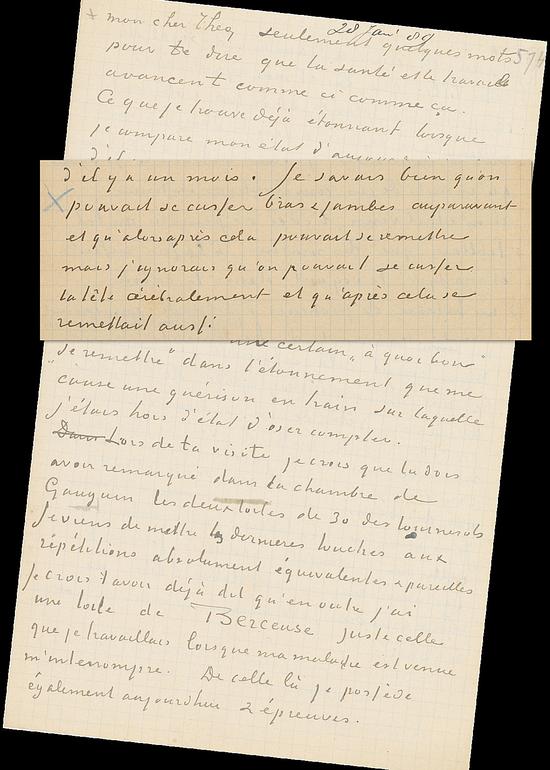 28 Jan' 89
mon cher Theo, seulement quelques mots 574
pour te dire que la santé et le travail
avancent comme ci comme ça.
Ce que je trouve déjà étonnant lorsque
je compare mon état d'aujourd'hui
d'il y a un mois. Je savais bien qu'on
pouvait se casser bras & jambes auparavant
et qu'alors après cela pouvait se remettre
mais j'ignorais qu'on pouvait se casser
la tête cérébralement et qu'après cela se
remettait aussi.
une certain „à quoi bon
se remettre" dans l'étonnement que me
cause une guérison en train sur laquelle
j'étais hors d'état d'oser compter.
Dans Lors de ta visite je crois que tu dois
avoir remarqué dans la chambre de
Gauguin les deux toiles de 30 des tournesols
Je viens de mettre les dernieres touches aux
répétitions absolument équivalentes & pareilles
Je crois t'avoir déjà dit qu'en outre j'ai
une toile de Berceuse juste celle
que je travaillais lorsque ma maladie est venue
m'interrompre. De celle là je possède
également aujourd'hui 2 épreuves.